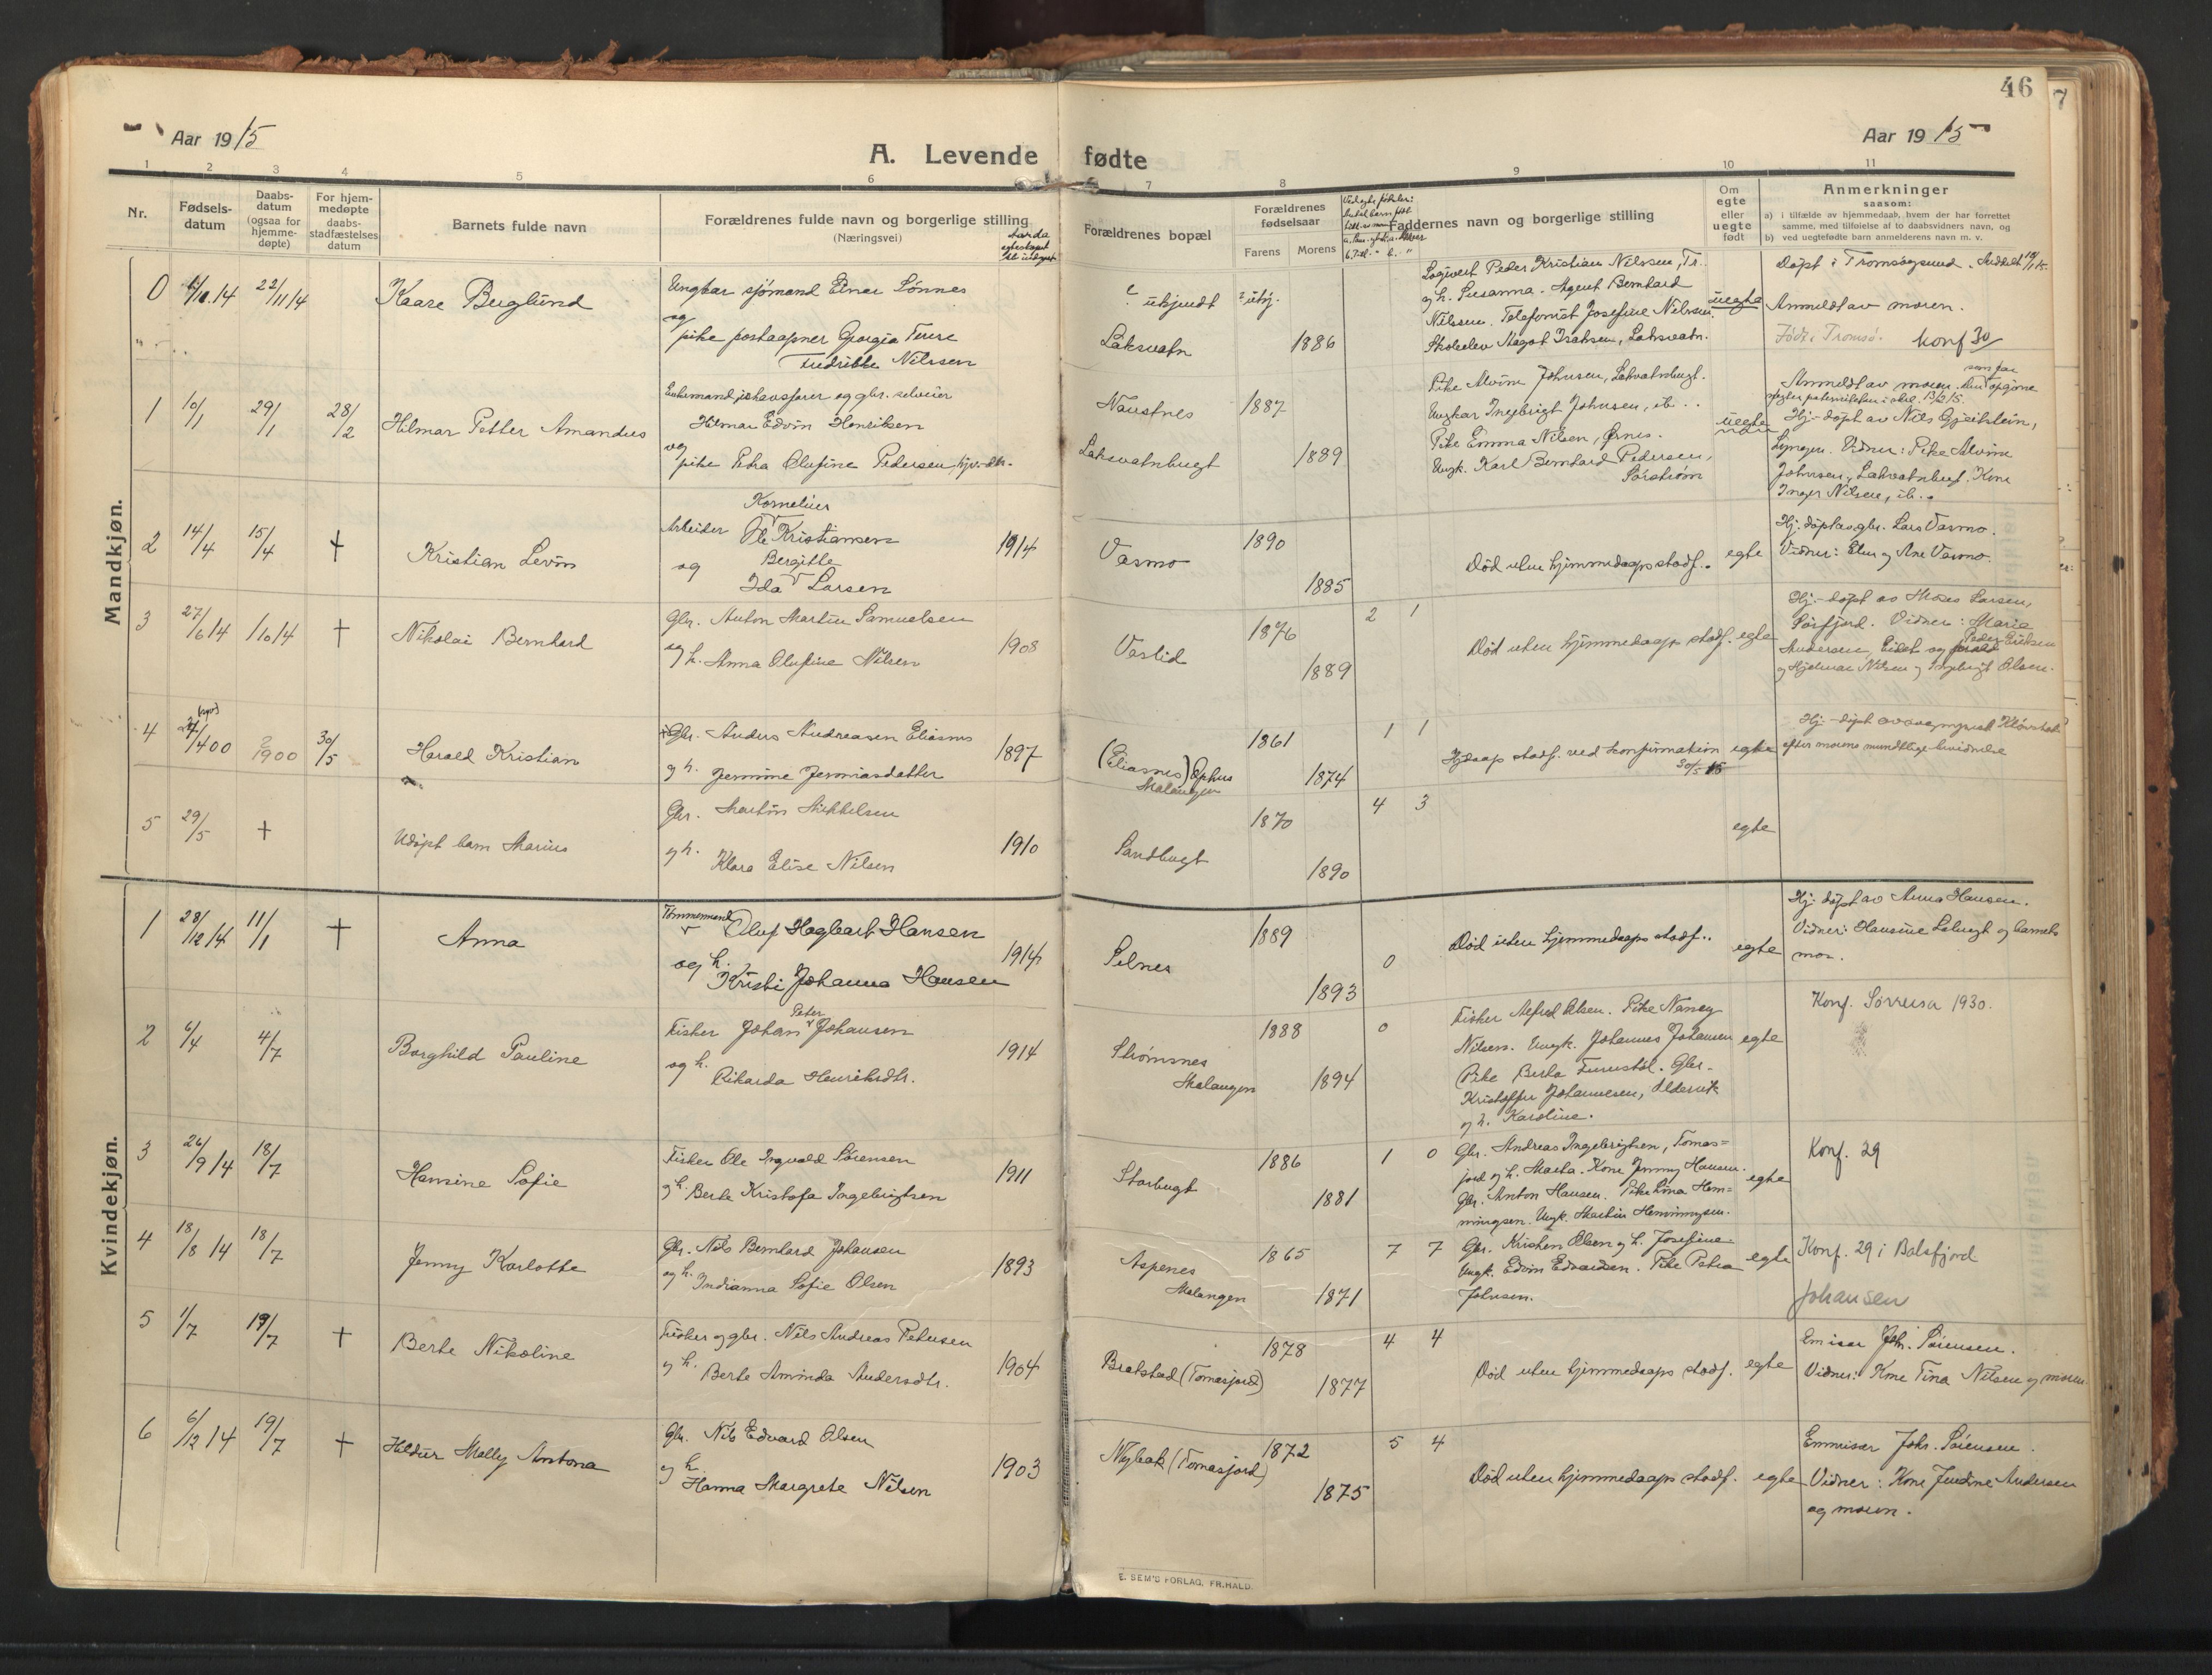 46
7
Aar 1915
A. Levende fødte
Aar 1915
1 2 3 4 5 6 7 8 9 10 11
Nr.
Fødsels-
datum
Daabs-
datum
(ogsaa for
hjemme-
døpte)
For hjem-
medøpte
daabs-
stadfæstelses
datum
Barnets fulde navn
Forældrenes fulde navn og borgerlige stilling
(Næringsvei)
Forældrenes bopæl
Forældrenes
fødselsaar
Farens
Morens
Faddernes navn og borgerlige stilling
Om
egte
eller
uegte
født
Anmerkninger
saasom:
a) i tilfælde av hjemmedaab, hvem der har forrettet
samme, med tilføielse af to daabsvidners navn, og
b) ved uegtefødte barn anmelderens navn m. v.
Mandkjøn.
0 22/11 14 Kaare Berglund
Ungkar sjømand Einar Sønnes
og
pike postaapner Georgia
Fredrikke Nilssen
? ubjendt ? ubj.
Laksvatn 1886
Logivert Peder Kristian Nilssen, Tr.
og h. Susanna. Agent Bernhard
Nilssen. Telefonist Josefine Nilssen.
Skoleelev Magot Isaksen, Laksvatn.
uegte
Døpt i Tromsøysund.
Anmeldt av moren.
Født i Tromsø. Konf 30
1 10/1 29/1 28/2 Hilmar Petter Amandus
Enkemand, og gbr. selveier
Hilmar Edvin Henriksen
og
pike Petra Olufine Pedersen,
Naustnes 1887
Laksvatnbugt 1889
Pike Alvine Johnsen, Laksvatnbugt.
Ungkar Ingebrigt Johnsen, ib.
Pike Emma Nilsen, Ørnes.
Ungk. Karl Bernhard Pedersen,
Sørstrøm
uegte
Anmeldt av moren.
Hj.-døpt av Nils
Lyngen. Vidner: Pike Alvine
Johnsen, Laksvatnbugt. Kone
Inger Nilsen, ib.
2 14/4 15/4 † Kristian Levin
Kornelius
Arbeider Ole Kristiansen 1914
og Bergitte
Ida Larsen
Vasmo 1890
1885
Død uten hjemmedaaps stadf. egte
Hj. døpt av gbr. Lars Vasmo.
Vidner: Elen og Ane Vasmo.
3 27/6 14 /10 14 † Nikolai Bernhard
Gbr. Anton Martin Samuelsen
og h. Anna Olufine Nilsen 1908
Vaslid 1876
1889
2 1
Død uten hjemmedaaps stadf. egte
Hj.-døpt av Moses Larsen,
Sørfjord. Vidner: Marie
Andersen, Eidet og Peder Eriksen
og Hjelmar Nilsen og Ingebrigt Olsen.
4 27/4 00 ? 1900 30/5 Harald Kristian
Gbr. Anders Andreasen Eliasnes
og h. Jermine Jermiasdatter 1897
(Eliasnes) Ophus
Malangen 1861
1874
1 1
Hjdaap stadf. ved konfirmation egte
30/5 15
efter morens mundtlige bevidnelse
5 29/5 † Udøpt barn Marius
Gbr. Martin Mikkelsen
og h. Klara Elise Nilsen 1910
Sandbugt 1870
1890
4 3
egte
Kvindekjøn.
1 28/12 14 11/1 † Anna
Tømmermand Oluf Hagbart Hansen
og h. Kristi Johanna Hansen 1914
Selnes 1889
1893
0
Død uten hjemmedaaps stadf. egte
Hj. døpt av Anna Hansen.
Vidner: Hansine Selbugt og barnets
mor.
2 6/4 4/7 Borghild Pauline
Peter
Fisker Johan Johansen
og h. Rikarda Henriksdtr. 1914
Strømsnes
Malangen 1888
1894
0
Fisker Alfred Olsen. Pike Nancy
Nilsen. Ungk. Johannes Johansen egte
Pike Berta Furustøl. Gbr.
Kristoffer Johannesen, Aldervik
og h. Karoline.
Konf. Sørreisa 1930.
3 26/9 14 18/7 Hansine Sofie
Fisker Ole Ingvald Sørensen
og h. Berte Kristofa Ingebrigtsen 1911
Storbugt 1886
1881
1 0
Gbr. Andreas Ingebrigtsen, Tomas=
jord og h. Marta. Kone Jenny Hansen.
Gbr. Anton Hansen. Pike Lina Hem=
mingsen. Ungk. Martin Hemmingsen.
egte
Konf. 29
4 18/8 14 18/7 Jenny Karlotte
Gbr. Nils Bernhard Johansen
og h. Indianna Sofie Olsen 1893
Aspenes
Malangen 1865
1871
7 7
Gbr. Kristen Olsen og h. Josefine.
Ungk. Edvin Edvardsen. Pike Petra
Johnsen.
egte
Konf. 29 i Balsfjord
Johansen
5 1/7 19/7 † Berte Nikoline
Fisker og gbr. Nils Andreas Petersen
og h. Berte Aminda Andersdtr. 1904
Brakstad (Tomasjord) 1878
1877
4 4
Død uten hjemmedaaps stadf. egte
Emisær Joh. Sørensen.
Vidner: Kone Tina Nilsen og moren.
6 6/12 14 19/7 † Hildur Molly Antona
Gbr. Nils Edvard Olsen
og h.
Hanna Margrete Nilsen 1903
Nybak (Tomasjord) 1872
1875
5 4
Død uten hjemmedaaps stadf. egte
Emmisær Johs. Sørensen.
Vidner: Kone Jendine Andersen
og moren.
E. SEM'S FORLAG, FR.HALD.